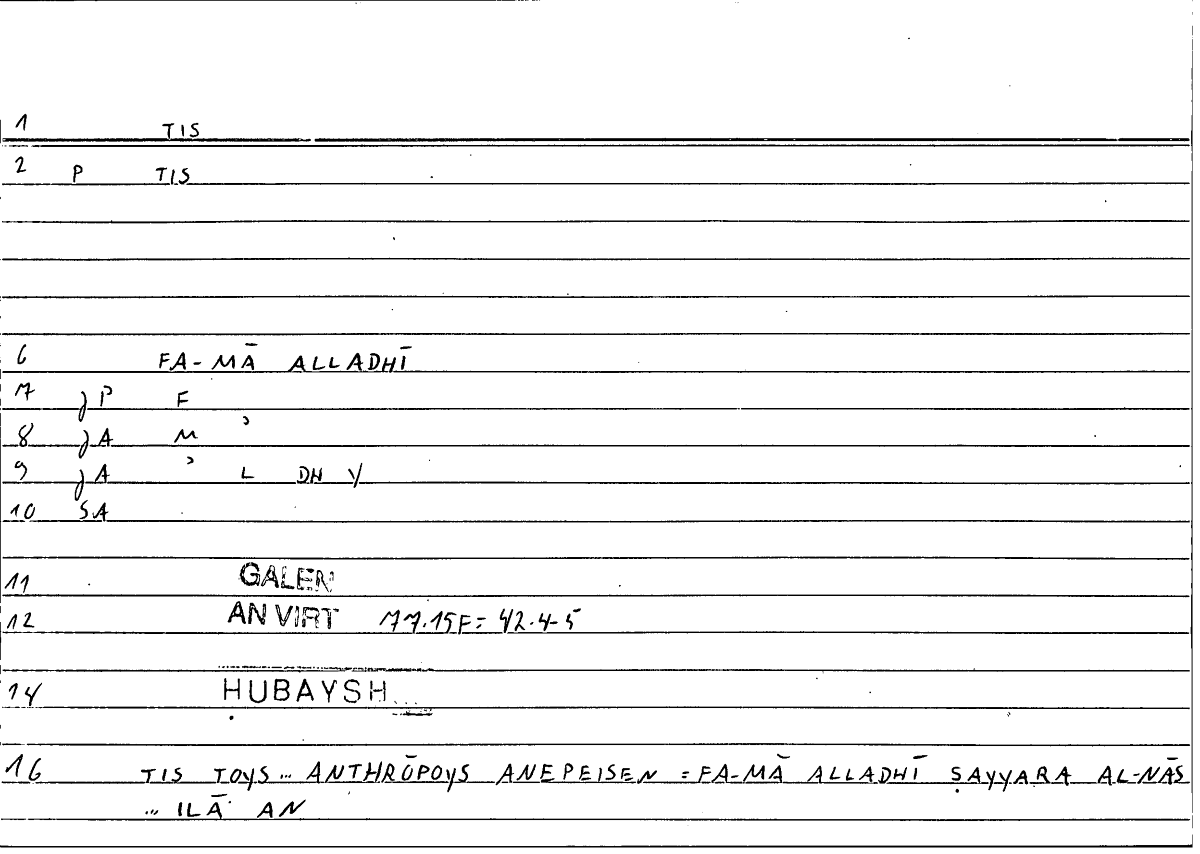 1 TIS
2 P TIS
6 FA-MĀ ALLADHĪ
7 JP F
8 JA M ʾ
9 JA ʾ L DH Y
10 SA
11 GALEN
12 AN VIRT 77.15F= 42.4-5
14 ḤUBAYSH
16 TIS TOYS... ANTHRŌPOYS ANEPEISEN = FA-MĀ ALLADHĪ ṢAYYARA AL-NĀS
... ILĀ AN